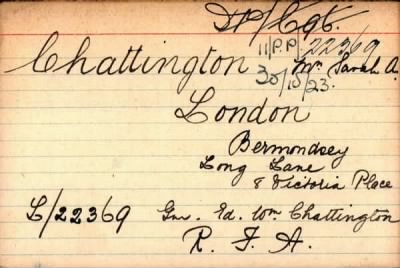 11/P.P./22369
Chattington Mrs Sarah A.
30/10/23.
London
Bermondsey
Long Lane
8 Victoria Place
L/22369 Gnr. Ed. Wm Chattington
R. F. A.